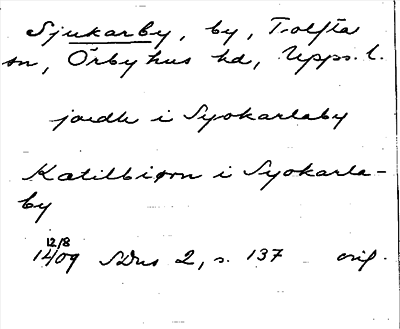 Sjukarby, by, Tolfta
sn, Örbyhus hd, Upps. l.
jordh i Syokarlaby
Katilbiørn i Syokarla-
by
12/8
1409 SDns 2, s. 137 orig.